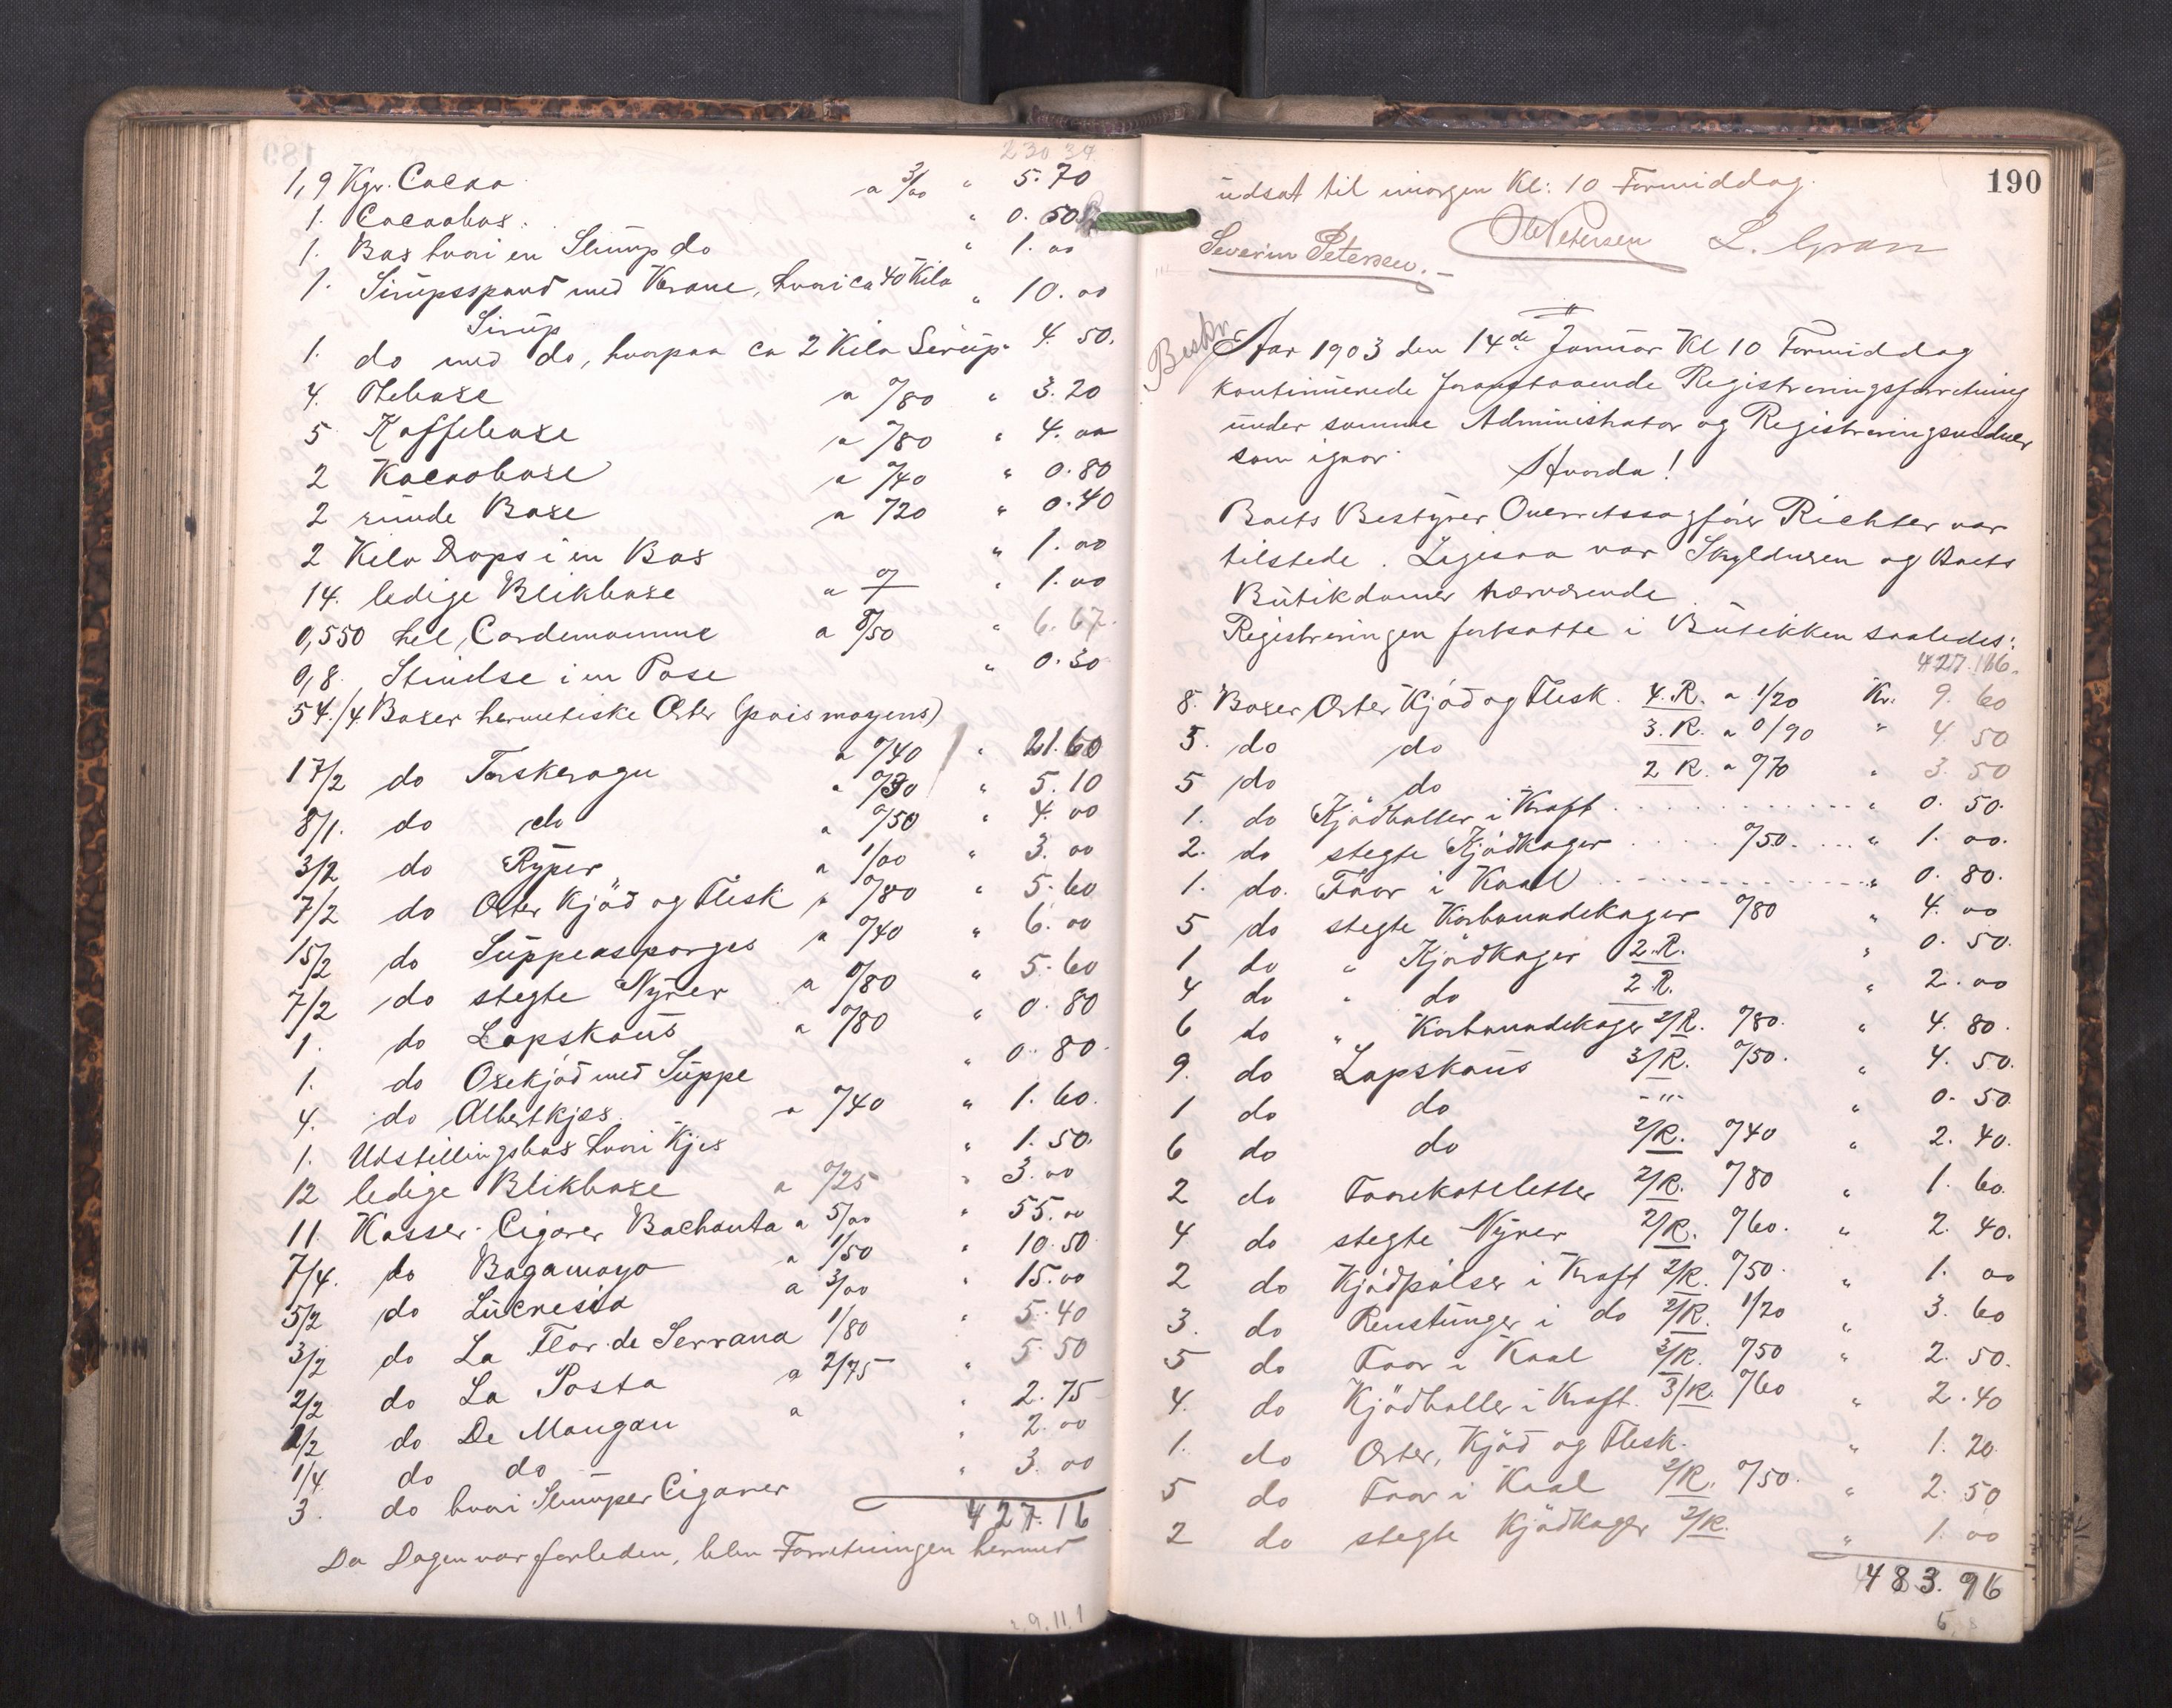 230 34.
1,9 Kgr. Cacao a 3/00 " 5.70
1. Cacaobox. " 0.50
1. Box hvori en Slump do " 1.00
1. Sirupsspand med Krane, hvori ca 40 Kilo Sirup " 10.00
1. do med do, hvorpaa ca 2 Kilo Sirup " 4.50.
4. Theboxe a 0/80 " 3.20
5 Kaffeboxe a 0/80 " 4.00
2 Kacaoboxe a 0/40 " 0.80
2 runde Boxe a 0/20 " 0.40
2 Kilo Drops i en Box " 1.00
14. ledige Blikboxe a 0/ " 1.00
0,550 hel Cardemomme a 8/50 " 6.67.
0,8 Stivelse i en Pose " 0.30
54./4 Boxer hermetiske Erter (pois moyens) a 0/40 " 21.60
17/2 do Torskerogn a 0/30 " 5.10
8/1. do do a 0/50 " 4.00
3/2 do Ryper a 1/00 " 3.00
7/2 do Erter Kjød og Flesk a 0/80 " 5.60
15/2 do Suppeasparges a 0/40 " 6.00
7/2 do stegte Nyrer a 0/80 " 5.60
1. do Lapskaus a 0/80 " 0.80
1. do Oxekjød med Suppe " 0.80.
4. do Albertkjex a 0/40 " 1.60.
1. Udstillingsbox hvori Kjex " 1.50.
12 ledige Blikboxe a 0/25 " 3.00
11 Kasser Cigarer Bachanta a 5/00 " 55.00
7/4. do Bagamoyo a 1/50 " 10.50
5/2 do Lucresia a 3/00 " 15.00
3/2 do La Flor de Serrana 1/80 " 5.40
2/2 do La Posta a 2/75 " 5.50
1/2 do De Mangan a " 2.75
1/4 do do " 2.00
3. do hvori Slumper Cigarer " 3.00
427.16
Da Dagen var forleden, blev Forretningen hermed
190
udsat til imorgen Kl: 10 Formiddag.
Severin Petersen. Petersen L. Gran
Beskr.
Aar 1903 den 14de Januar Kl 10 Formiddag
kontinuerede foranstaaende Registreringsforretning
under samme Administrator og Registreringsvidner
som igaar. Hvorda!
Boets Bestyrer Overretssagfører Richter var
tilstede. Ligesaa var Skyldneren og Boets
Butikdamer nærværende.
Registreringen fortsatte i Butikken saaledes:
427.16.
8. Boxer Erter Kjød og Flesk. 4.R. a 1/20 Kr. 9.60
5. do do 3.R. a 0/90 " 4.50
5 do do 2 R. a 0/70 " 3.50
1. do Kjødboller i Kraft " 0.50.
2. do stegte Kjødkager 0/50. " 1.00.
1. do. Faar i Kaal " 0.80.
5 do stegte Karbonadekager 0/80 " 4.00
1 do " Kjødkager 2.R. " 0.50.
4 do " do 2 R. " 2.00
6 do " Karbonadekager 2/R. 0/80. " 4.80.
9. do Lapskaus 3/R. 0/50. " 4.50.
1 do do -"- " 0.50
6 do do 2/R. 0/40 " 2.40.
2 do Faarekoteletter 2/R. 0/80 " 1.60.
4 do stegte Nyrer 2/R. 0/60. " 2.40.
2 do Kjødpølser i Kraft 2/R. 0/50. " 1.00
3. do Renstunger i do 2/R. 1/20 " 3.60
5 do Faar i Kaal 3/R. 0/50 " 2.50.
4. do Kjødboller i Kraft. 3/R. 0/60 " 2.40
1. do Erter, Kjød og Flesk. " 1.20
5 do Faar i Kaal 2/R. 0/50. " 2.50
2 do stegte Kjødkager 2/R. " 1.00
483.96